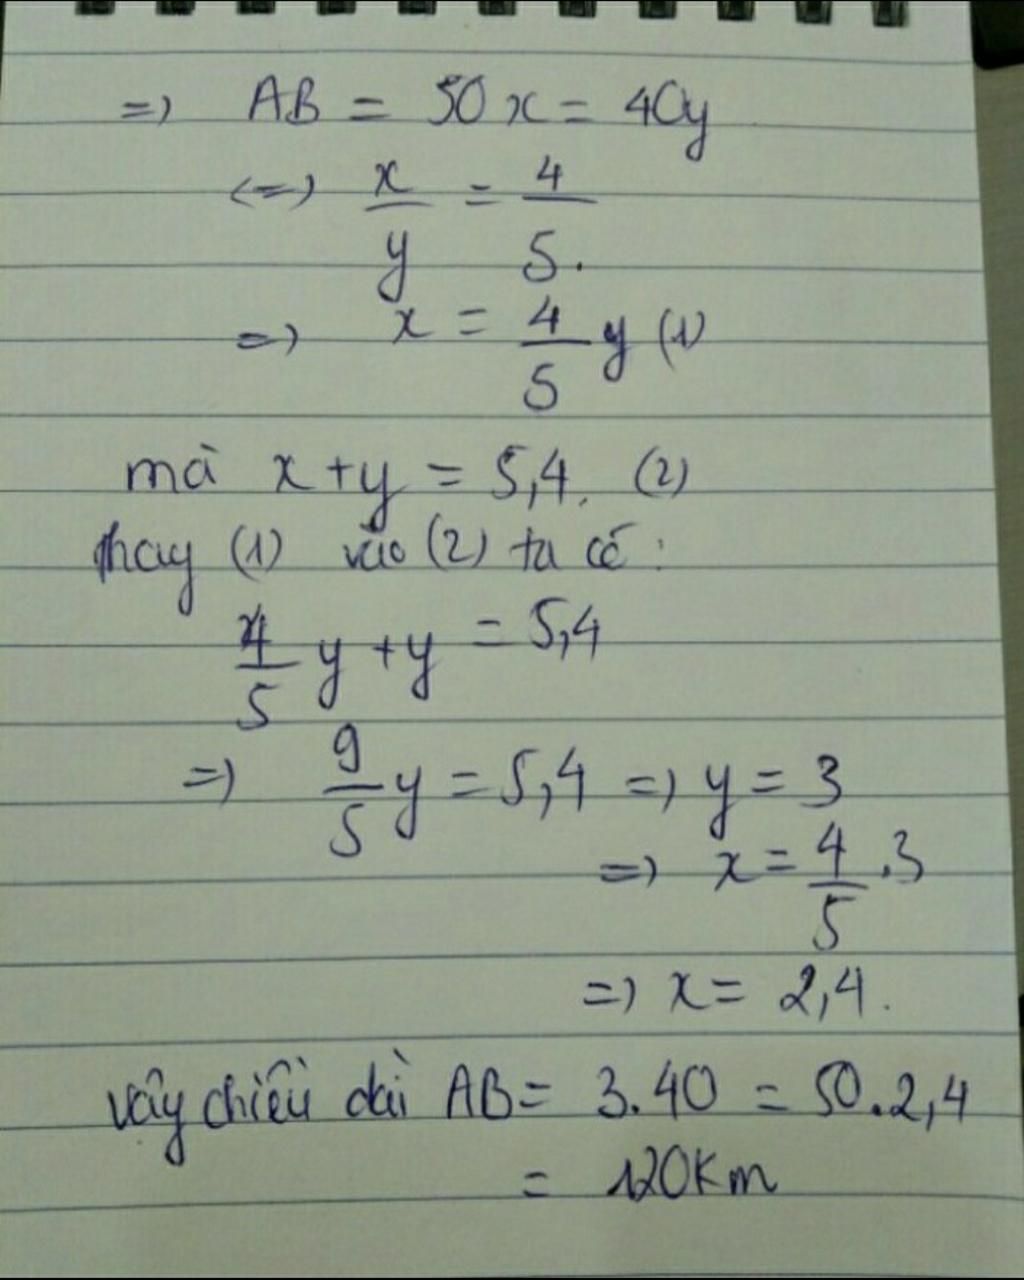 => AB = 50x = 40y
<=> x/y = 4/5.
=> x = 4/5 y (1)
mà x+y = 5,4. (2)
thay (1) vào (2) ta có :
4/5 y + y = 5,4
=> 9/5 y = 5,4 => y = 3
=> x = 4/5 .3
=> x = 2,4.
vậy chiều dài AB = 3.40 = 50.2,4
= 120Km